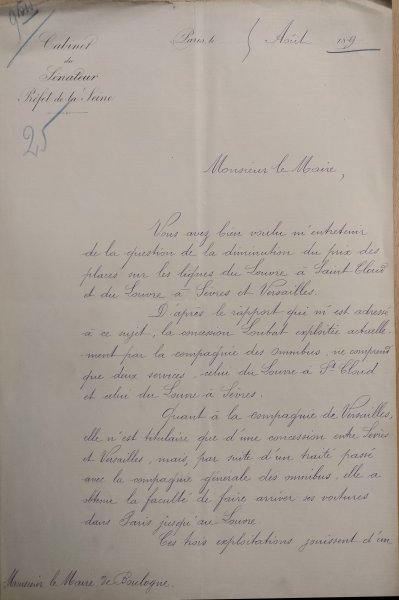 Cabinet
du
Sénateur
Préfet de la Seine
25
Paris, le 5 Août 189
Monsieur le Maire,
Vous avez bien voulu m'entretenir
de la question de la diminution du prix des
places sur les lignes du Louvre à Saint Cloud
et du Louvre à Sèvres et Versailles.
D'après le rapport qui m'est adressé
à ce sujet, la concession Loubat exploitée actuelle-
ment par la compagnie des omnibus, ne comprend
que deux services, celui du Louvre à St Cloud
et celui du Louvre à Sèvres.
Quant à la compagnie de Versailles,
elle n'est titulaire que d'une concession entre Sèvres
et Versailles, mais, par suite d'un traité passé
avec la compagnie générale des omnibus, elle a
obtenu la faculté de faire arriver ses voitures
dans Paris jusqu'au Louvre.
Ces trois exploitations jouissent d'un
Monsieur le Maire de Boulogne.